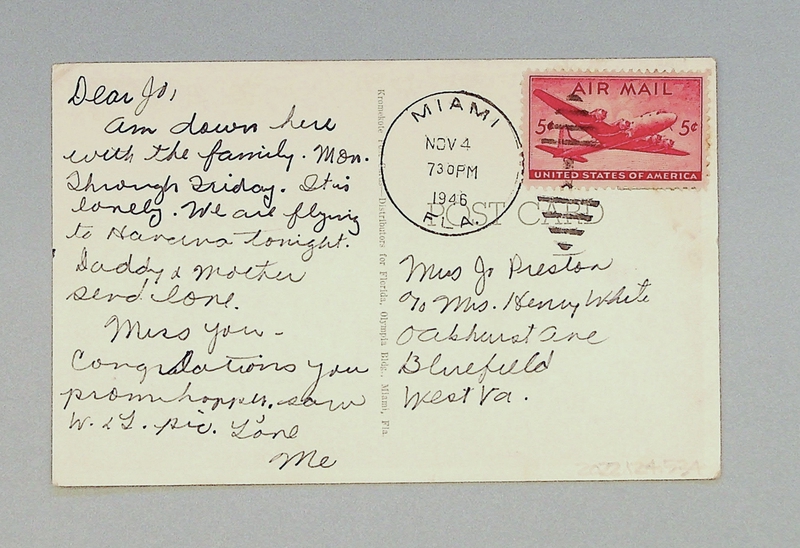 Dear Jo,
Am down here
with the family. Mon.
through Friday. It is
lonely. We are flying
to Havana tonight.
Daddy & Mother
send love.
Miss you -
Congradations you
promhopper. saw
W. & L. pic. Love
Me
Distributors for Florida, Olympia Bldg., Miami, Fla.
MIAMI
NOV 4
730PM
1946
FLA.
AIR MAIL
5¢ 5¢
UNITED STATES OF AMERICA
POST CARD
Miss Jo Preston
c/o Mrs. Henry White
Oakhurst Ave
Bluefield
West Va.